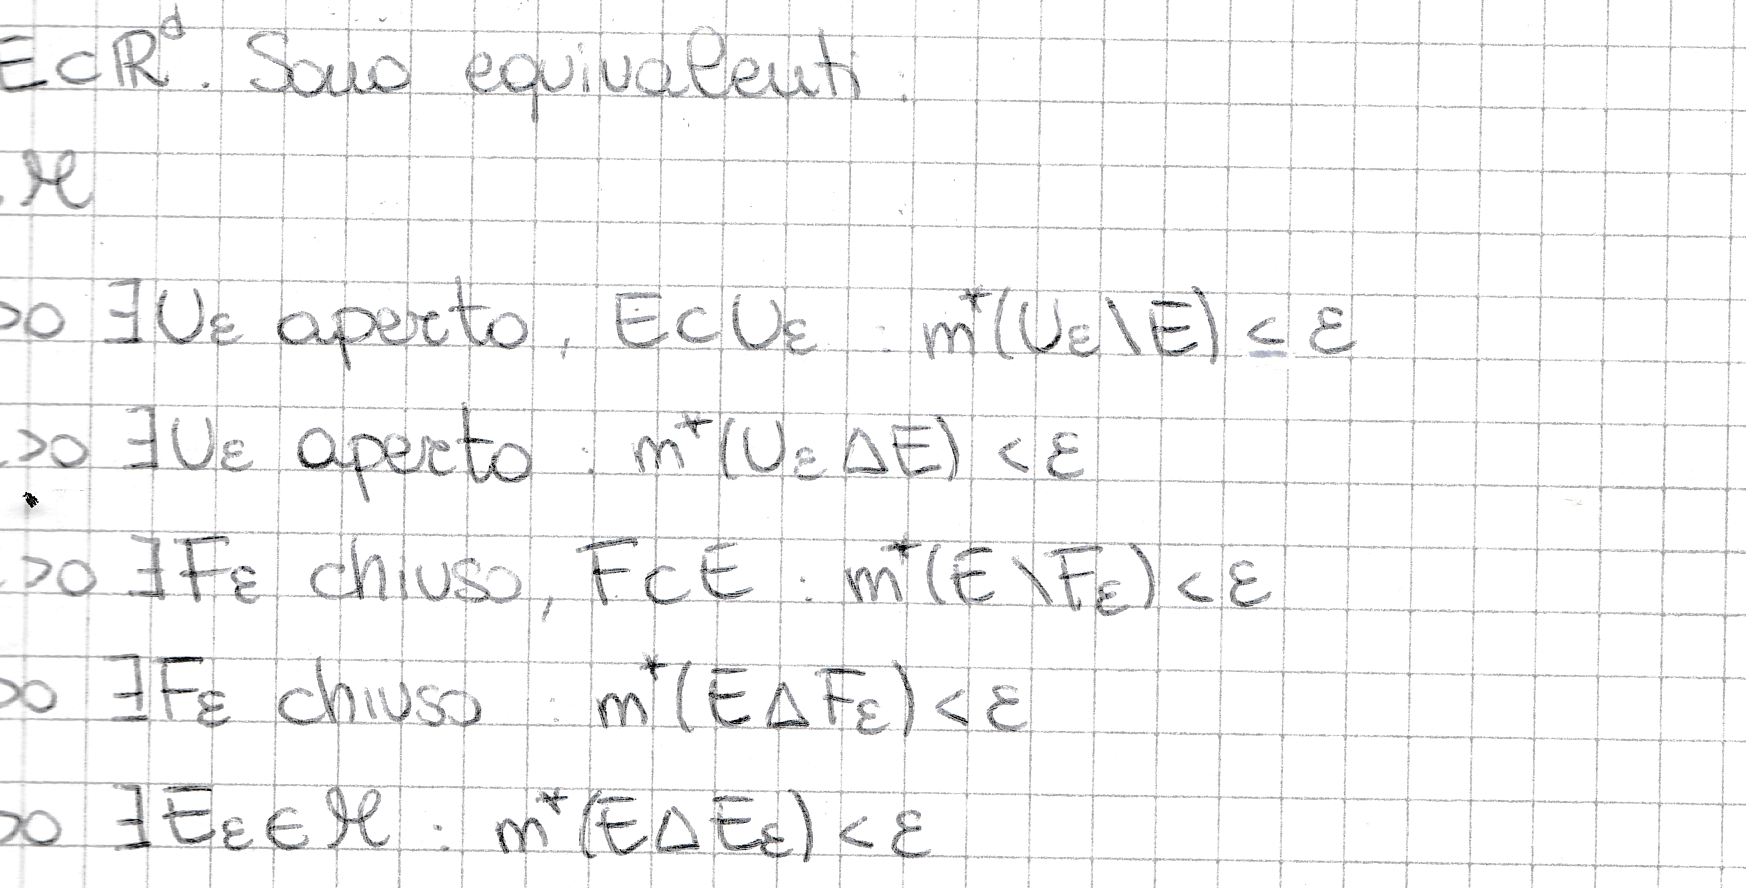 E⊂ℝᵈ. Sono equivalenti:
ℳ
>0 ∃Uε aperto, E⊂Uε : m*(Uε\E) ≤ ε
>0 ∃Uε aperto : m*(UεΔE) <ε
>0 ∃Fε chiuso, F⊂E : m*(E\Fε) <ε
>0 ∃Fε chiuso : m*(EΔFε) <ε
>0 ∃Eε∈ℳ : m*(EΔEε) <ε